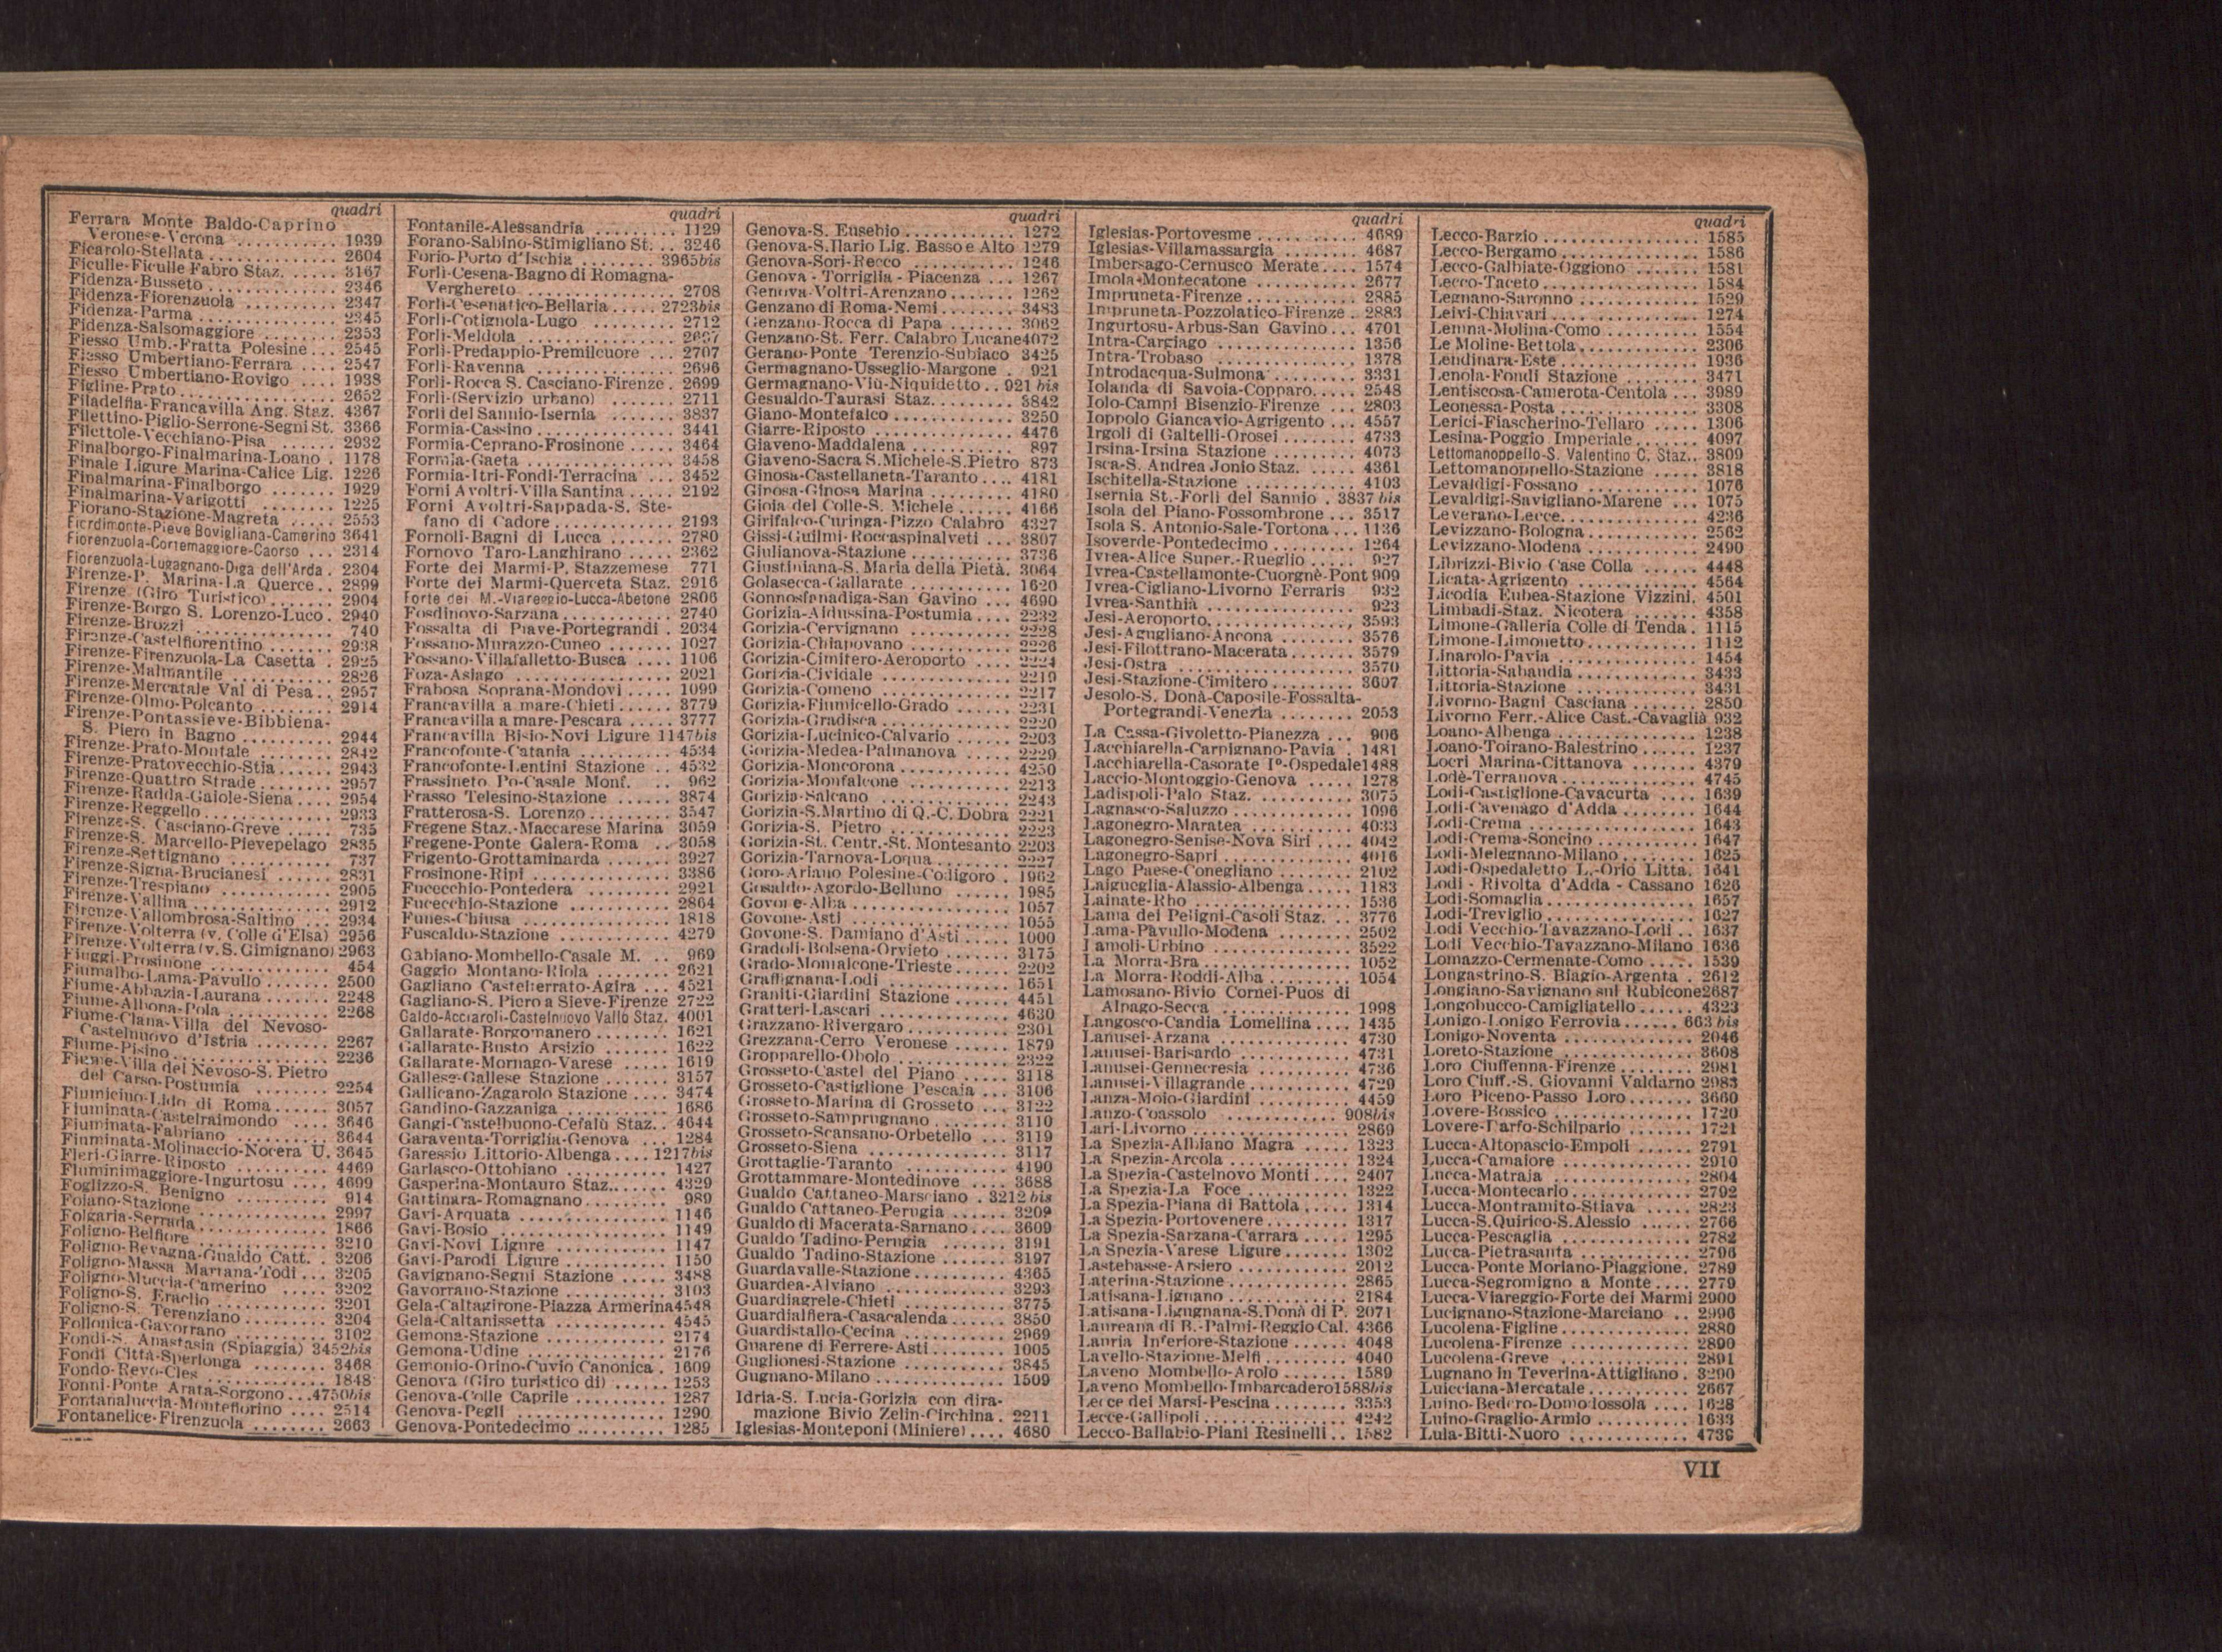 quadri
Ferrara Monte Baldo-Caprino
Veronese-Verona ........... 1939
Ficarolo-Stellata ............. 2604
Ficulle-Ficulle Fabro Staz. ..... 3167
Fidenza-Busseto ............. 2346
Fidenza-Fiorenzuola .......... 2347
Fidenza-Parma .............. 2345
Fidenza-Salsomaggiore ........ 2353
Fiesso Umb.-Fratta Polesine... 2545
Fiesso Umbertiano-Ferrara .... 2547
Fiesso Umbertiano-Rovigo .... 1938
Figline-Prato................ 2652
Filadelfia-Francavilla Ang. Staz. 4367
Filettino-Piglio-Serrone-Segni St. 3366
Filettole-Vecchiano-Pisa ...... 2932
Finalborgo-Finalmarina-Loano . 1178
Finale Ligure Marina-Calice Lig. 1226
Finalmarina-Finalborgo ....... 1929
Finalmarina-Varigotti ........ 1225
Fiorano-Stazione-Magreta ..... 2553
Fiordimonte-Pieve Bovigliana-Camerino 3641
Fiorenzuola-Cortemaggiore-Caorso ... 2314
Fiorenzuola-Lugagnano-Diga dell'Arda . 2304
Firenze-P. Marina-La Querce.. 2899
Firenze (Giro Turistico)....... 2904
Firenze-Borgo S. Lorenzo-Luco. 2940
Firenze-Brozzi ............... 740
Firenze-Castelfiorentino ....... 2938
Firenze-Firenzuola-La Casetta . 2925
Firenze-Malmantile ........... 2826
Firenze-Mercatale Val di Pesa.. 2957
Firenze-Olmo-Polcanto ........ 2914
Firenze-Pontassieve-Bibbiena-
S. Piero in Bagno .......... 2944
Firenze-Prato-Montale ........ 2842
Firenze-Pratovecchio-Stia ...... 2943
Firenze-Quattro Strade ....... 2957
Firenze-Radda-Gaiole-Siena .... 2954
Firenze-Reggello.............. 2933
Firenze-S. Casciano-Greve ..... 735
Firenze-S. Marcello-Pievepelago 2835
Firenze-Settignano ........... 737
Firenze-Signa-Brucianesi ...... 2831
Firenze-Trespiano ............ 2905
Firenze-Vallina .............. 2912
Firenze-Vallombrosa-Saltino ... 2934
Firenze-Volterra (v. Colle d'Elsa) 2956
Firenze-Volterra (v.S.Gimignano) 2963
Fiuggi-Frosinone ............. 454
Fiumalbo-Lama-Pavullo ....... 2500
Fiume-Abbazia-Laurana ....... 2248
Fiume-Albona-Pola ........... 2268
Fiume-Clana-Villa del Nevoso-
Castelnuovo d'Istria ........ 2267
Fiume-Pisino................. 2236
Fiume-Villa del Nevoso-S. Pietro
del Carso-Postumia ......... 2254
Fiumicino-Lido di Roma...... 3057
Fiuminata-Castelraimondo .... 3646
Fiuminata-Fabriano .......... 3644
Fiuminata-Molinaccio-Nocera U. 3645
Fleri-Giarre-Riposto .......... 4469
Fluminimaggiore-Ingurtosu .... 4699
Foglizzo-S. Benigno .......... 914
Foiano-Stazione .............. 2997
Folgaria-Serrada.............. 1866
Foligno-Belfiore .............. 3210
Foligno-Bevagna-Gualdo Catt. . 3206
Foligno-Massa Martana-Todi ... 3205
Foligno-Muccia-Camerino ..... 3202
Foligno-S. Eraclio ............ 3201
Foligno-S. Terenziano ......... 3204
Follonica-Gavorrano .......... 3102
Fondi-S. Anastasia (Spiaggia) 3452bis
Fondi Città-Sperlonga ........ 3468
Fondo-Revo-Cles ............. 1848
Fonni-Ponte Arata-Sorgono ...4750bis
Fontanaluccia-Montefiorino .... 2514
Fontanelice-Firenzuola ........ 2663
quadri
Fontanile-Alessandria ......... 1129
Forano-Sabino-Stimigliano St. .. 3246
Forio-Porto d'Ischia ........ 3965bis
Forlì-Cesena-Bagno di Romagna-
Verghereto ................ 2708
Forlì-Cesenatico-Bellaria ..... 2723bis
Forlì-Cotignola-Lugo ......... 2712
Forlì-Meldola ................
Forlì-Predappio-Premilcuore ... 2707
Forlì-Ravenna ............... 2696
Forlì-Rocca S. Casciano-Firenze . 2699
Forlì-(Servizio urbano) ....... 2711
Forlì del Sannio-Isernia ....... 3837
Formia-Cassino............... 3441
Formia-Ceprano-Frosinone ..... 3464
Formia-Gaeta ................ 3458
Formia-Itri-Fondi-Terracina ... 3452
Forni Avoltri-Villa Santina ..... 2192
Forni Avoltri-Sappada-S. Ste-
fano di Cadore............. 2193
Fornoli-Bagni di Lucca ....... 2780
Fornovo Taro-Langhirano ..... 2362
Forte dei Marmi-P. Stazzemese 771
Forte dei Marmi-Querceta Staz. 2916
Forte dei M.-Viareggio-Lucca-Abetone 2806
Fosdinovo-Sarzana............ 2740
Fossalta di Piave-Portegrandi . 2034
Fossano-Murazzo-Cuneo ....... 1027
Fossano-Villafalletto-Busca .... 1106
Foza-Asiago ................. 2021
Frabosa Soprana-Mondovì ..... 1099
Francavilla a mare-Chieti...... 3779
Francavilla a mare-Pescara ..... 3777
Francavilla Bisio-Novi Ligure 1147bis
Francofonte-Catania .......... 4534
Francofonte-Lentini Stazione .. 4532
Frassineto Po-Casale Monf. .. 962
Frasso Telesino-Stazione ...... 3874
Fratterosa-S. Lorenzo......... 3547
Fregene Staz.-Maccarese Marina 3059
Fregene-Ponte Galera-Roma .. 3058
Frigento-Grottaminarda ....... 3927
Frosinone-Ripi ............... 3386
Fucecchio-Pontedera ......... 2921
Fucecchio-Stazione ........... 2864
Funes-Chiusa ................ 1818
Fuscaldo-Stazione ............ 4279
Gabiano-Mombello-Casale M. .. 969
Gaggio Montano-Riola ........ 2621
Gagliano Castelferrato-Agira ... 4521
Gagliano-S. Piero a Sieve-Firenze 2722
Galdo-Acciaroli-Castelnuovo Vallo Staz. 4001
Gallarate-Borgomanero ........ 1621
Gallarate-Busto Arsizio ....... 1622
Gallarate-Mornago-Varese ..... 1619
Gallese-Gallese Stazione ....... 3157
Gallicano-Zagarolo Stazione .... 3474
Gandino-Gazzaniga ........... 1686
Gangi-Castelbuono-Cefalù Staz.. 4644
Garaventa-Torriglia-Genova ... 1284
Garessio Littorio-Albenga .... 1217bis
Garlasco-Ottobiano ........... 1427
Gasperina-Montauro Staz....... 4329
Gattinara-Romagnano ......... 989
Gavi-Arquata ................ 1146
Gavi-Bosio .................. 1149
Gavi-Novi Ligure ............ 1147
Gavi-Parodi Ligure ........... 1150
Gavignano-Segni Stazione ..... 3488
Gavorrano-Stazione ........... 3103
Gela-Caltagirone-Piazza Armerina4548
Gela-Caltanissetta ............ 4545
Gemona-Stazione ............. 2174
Gemona-Udine ............... 2176
Gemonio-Orino-Cuvio Canonica . 1609
Genova (Giro turistico di) ...... 1253
Genova-Colle Caprile .......... 1287
Genova-Pegli ................ 1290
Genova-Pontedecimo .......... 1285
quadri
Genova-S. Eusebio ............ 1272
Genova-S.Ilario Lig. Basso e Alto 1279
Genova-Sori-Recco ........... 1246
Genova - Torriglia - Piacenza ... 1267
Genova-Voltri-Arenzano....... 1262
Genzano di Roma-Nemi....... 3483
Genzano-Rocca di Papa ....... 3062
Genzano-St. Ferr. Calabro Lucane4072
Gerano-Ponte Terenzio-Subiaco 3425
Germagnano-Usseglio-Margone . 921
Germagnano-Viù-Niquidetto .. 921 bis
Gesualdo-Taurasi Staz......... 3842
Giano-Montefalco ............ 3250
Giarre-Riposto ............... 4476
Giaveno-Maddalena .......... 897
Giaveno-Sacra S.Michele-S.Pietro 873
Ginosa-Castellaneta-Taranto .... 4181
Ginosa-Ginosa Marina ........ 4180
Gioia del Colle-S. Michele ..... 4166
Girifalco-Curinga-Pizzo Calabro 4327
Gissi-Guilmi-Roccaspinalveti ... 3807
Giulianova-Stazione ........... 3736
Giustiniana-S. Maria della Pietà. 3064
Golasecca-Gallarate ........... 1620
Gonnosfanadiga-San Gavino ... 4690
Gorizia-Aidussina-Postumia .... 2232
Gorizia-Cervignano ........... 2228
Gorizia-Chiapovano .......... 2226
Gorizia-Cimitero-Aeroporto .... 2224
Gorizia-Cividale .............. 2219
Gorizia-Comeno .............. 2217
Gorizia-Fiumicello-Grado ...... 2231
Gorizia-Gradisca ............. 2220
Gorizia-Lucinico-Calvario ...... 2203
Gorizia-Medea-Palmanova ..... 2229
Gorizia-Moncorona ........... 4250
Gorizia-Monfalcone ........... 2213
Gorizia-Salcano .............. 2243
Gorizia-S.Martino di Q.-C. Dobra 2221
Gorizia-S. Pietro ............. 2223
Gorizia-St. Centr.-St. Montesanto 2203
Gorizia-Tarnova-Loqua ........ 2227
Goro-Ariano Polesine-Codigoro . 1962
Gosaldo-Agordo-Belluno ...... 1985
Govone-Alba ................ 1057
Govone-Asti ................. 1055
Govone-S. Damiano d'Asti ..... 1000
Gradoli-Bolsena-Orvieto ....... 3175
Grado-Monfalcone-Trieste...... 2202
Graffignana-Lodi ............. 1651
Graniti-Giardini Stazione ...... 4451
Gratteri-Lascari .............. 4630
Grazzano-Rivergaro ........... 2301
Grezzana-Cerro Veronese ...... 1879
Gropparello-Obolo ............ 2322
Grosseto-Castel del Piano ..... 3118
Grosseto-Castiglione Pescaia ... 3106
Grosseto-Marina di Grosseto ... 3122
Grosseto-Samprugnano ....... 3110
Grosseto-Scansano-Orbetello ... 3119
Grosseto-Siena ............... 3117
Grottaglie-Taranto ........... 4190
Grottammare-Montedinove .... 3688
Gualdo Cattaneo-Marsciano . 3212 bis
Gualdo Cattaneo-Perugia ...... 3209
Gualdo di Macerata-Sarnano ... 3609
Gualdo Tadino-Perugia ....... 3191
Gualdo Tadino-Stazione ....... 3197
Guardavalle-Stazione.......... 4365
Guardea-Alviano ............. 3293
Guardiagrele-Chieti ........... 3775
Guardialfiera-Casacalenda ..... 3850
Guardistallo-Cecina ........... 2969
Guarene di Ferrere-Asti........ 1005
Guglionesi-Stazione ........... 3845
Gugnano-Milano ............. 1509
Idria-S. Lucia-Gorizia con dira-
mazione Bivio Zelin-Circhina . 2211
Iglesias-Monteponi (Miniere) .... 4680
quadri
Iglesias-Portovesme ........... 4689
Iglesias-Villamassargia ........ 4687
Imbersago-Cernusco Merate.... 1574
Imola-Montecatone ........... 2677
Impruneta-Firenze ............ 2885
Impruneta-Pozzolatico-Firenze . 2883
Ingurtosu-Arbus-San Gavino... 4701
Intra-Cargiago ............... 1356
Intra-Trobaso ................ 1378
Introdacqua-Sulmona ......... 3331
Iolanda di Savoia-Copparo..... 2548
Iolo-Campi Bisenzio-Firenze ... 2803
Ioppolo Giancaxio-Agrigento ... 4557
Irgoli di Galtelli-Orosei ....... 4733
Irsina-Irsina Stazione ......... 4073
Isca-S. Andrea Jonio Staz. ..... 4361
Ischitella-Stazione ............ 4103
Isernia St.-Forlì del Sannio . 3837 bis
Isola del Piano-Fossombrone ... 3517
Isola S. Antonio-Sale-Tortona ... 1136
Isoverde-Pontedecimo ......... 1264
Ivrea-Alice Super.-Rueglio ..... 927
Ivrea-Castellamonte-Cuorgnè-Pont 909
Ivrea-Cigliano-Livorno Ferraris 932
Ivrea-Santhià ................ 923
Jesi-Aeroporto................ 3593
Jesi-Agugliano-Ancona ........ 3576
Jesi-Filottrano-Macerata ....... 3579
Jesi-Ostra ................... 3570
Jesi-Stazione-Cimitero ......... 3607
Jesolo-S. Donà-Caposile-Fossalta-
Portegrandi-Venezia ........ 2053
La Cassa-Givoletto-Pianezza ... 906
Lacchiarella-Carpignano-Pavia . 1481
Lacchiarella-Casorate Iº-Ospedale1488
Laccio-Montoggio-Genova ..... 1278
Ladispoli-Palo Staz. .......... 3075
Lagnasco-Saluzzo ............ 1096
Lagonegro-Maratea ........... 4033
Lagonegro-Senise-Nova Siri .... 4042
Lagonegro-Sapri .............. 4016
Lago Paese-Conegliano ........ 2102
Laigueglia-Alassio-Albenga ..... 1183
Lainate-Rho ................. 1536
Lama dei Peligni-Casoli Staz. .. 3776
Lama-Pavullo-Modena ........ 2502
Lamoli-Urbino ............... 3522
La Morra-Bra ................ 1052
La Morra-Roddi-Alba ......... 1054
Lamosano-Bivio Cornei-Puos di
Alpago-Secca .............. 1998
Langosco-Candia Lomellina .... 1435
Lanusei-Arzana .............. 4730
Lanusei-Barisardo ............ 4731
Lanusei-Gennecresia .......... 4736
Lanusei-Villagrande........... 4729
Lanza-Moio-Giardini .......... 4459
Lanzo-Coassolo ............ 908bis
Lari-Livorno ................. 2869
La Spezia-Albiano Magra ..... 1323
La Spezia-Arcola ............. 1324
La Spezia-Castelnovo Monti .... 2407
La Spezia-La Foce ........... 1322
La Spezia-Piana di Battola ..... 1314
La Spezia-Portovenere......... 1317
La Spezia-Sarzana-Carrara ..... 1295
La Spezia-Varese Ligure....... 1302
Lastebasse-Arsiero ............ 2012
Laterina-Stazione ............. 2865
Latisana-Lignano ............. 2184
Latisana-Ligugnana-S.Donà di P. 2071
Laureana di B.-Palmi-Reggio Cal. 4366
Lauria Inferiore-Stazione ...... 4048
Lavello-Stazione-Melfi ........ 4040
Laveno Mombello-Arolo ....... 1589
Laveno Mombello-Imbarcadero1588bis
Lecce dei Marsi-Pescina ....... 3353
Lecce-Gallipoli ............... 4242
Lecco-Ballabio-Piani Resinelli .. 1582
quadri
Lecco-Barzio ................. 1585
Lecco-Bergamo ............... 1586
Lecco-Galbiate-Oggiono ....... 1581
Lecco-Taceto ................ 1584
Legnano-Saronno ............. 1529
Leivi-Chiavari ................ 1274
Lemna-Molina-Como ......... 1554
Le Moline-Bettola ............ 2306
Lendinara-Este ............... 1936
Lenola-Fondi Stazione ........ 3471
Lentiscosa-Camerota-Centola ... 3989
Leonessa-Posta ............... 3308
Lerici-Fiascherino-Tellaro ...... 1306
Lesina-Poggio Imperiale....... 4097
Lettomanoppello-S. Valentino C. Staz.. 3809
Lettomanoppello-Stazione ..... 3818
Levaldigi-Fossano ............ 1076
Levaldigi-Savigliano-Marene ... 1075
Leverano-Lecce............... 4236
Levizzano-Bologna............ 2562
Levizzano-Modena ........... 2490
Librizzi-Bivio Case Colla ...... 4448
Licata-Agrigento ............. 4564
Licodia Eubea-Stazione Vizzini. 4501
Limbadi-Staz. Nicotera ....... 4358
Limone-Galleria Colle di Tenda . 1115
Limone-Limonetto............ 1112
Linarolo-Pavia ............... 1454
Littoria-Sabaudia ............. 3433
Littoria-Stazione ............. 3431
Livorno-Bagni Casciana ....... 2850
Livorno Ferr.-Alice Cast.-Cavaglià 932
Loano-Albenga ............... 1238
Loano-Toirano-Balestrino ...... 1237
Locri Marina-Cittanova ....... 4379
Lodè-Terranova .............. 4745
Lodi-Castiglione-Cavacurta .... 1639
Lodi-Cavenago d'Adda ....... 1644
Lodi-Crema ................. 1643
Lodi-Crema-Soncino .......... 1647
Lodi-Melegnano-Milano ....... 1625
Lodi-Ospedaletto L.-Orio Litta. 1641
Lodi - Rivolta d'Adda - Cassano 1626
Lodi-Somaglia ............... 1657
Lodi-Treviglio................ 1627
Lodi Vecchio-Tavazzano-Lodi .. 1637
Lodi Vecchio-Tavazzano-Milano 1636
Lomazzo-Cermenate-Como ..... 1539
Longastrino-S. Biagio-Argenta . 2612
Longiano-Savignano sul Rubicone2687
Longobucco-Camigliatello ...... 4323
Lonigo-Lonigo Ferrovia ...... 663 bis
Lonigo-Noventa .............. 2046
Loreto-Stazione .............. 3608
Loro Ciuffenna-Firenze ........ 2981
Loro Ciuff.-S. Giovanni Valdarno 2983
Loro Piceno-Passo Loro....... 3660
Lovere-Bossico ............... 1720
Lovere-Darfo-Schilpario ....... 1721
Lucca-Altopascio-Empoli ...... 2791
Lucca-Camaiore .............. 2910
Lucca-Matraja ............... 2804
Lucca-Montecarlo............. 2792
Lucca-Montramito-Stiava ...... 2823
Lucca-S.Quirico-S.Alessio ...... 2766
Lucca-Pescaglia .............. 2782
Lucca-Pietrasanta ............ 2796
Lucca-Ponte Moriano-Piaggione. 2789
Lucca-Segromigno a Monte .... 2779
Lucca-Viareggio-Forte dei Marmi 2900
Lucignano-Stazione-Marciano .. 2996
Lucolena-Figline.............. 2880
Lucolena-Firenze ............. 2890
Lucolena-Greve .............. 2891
Lugnano in Teverina-Attigliano . 3290
Luicciana-Mercatale ........... 2667
Luino-Bedero-Domodossola .... 1628
Luino-Graglio-Armio .......... 1633
Lula-Bitti-Nuoro .............
VII